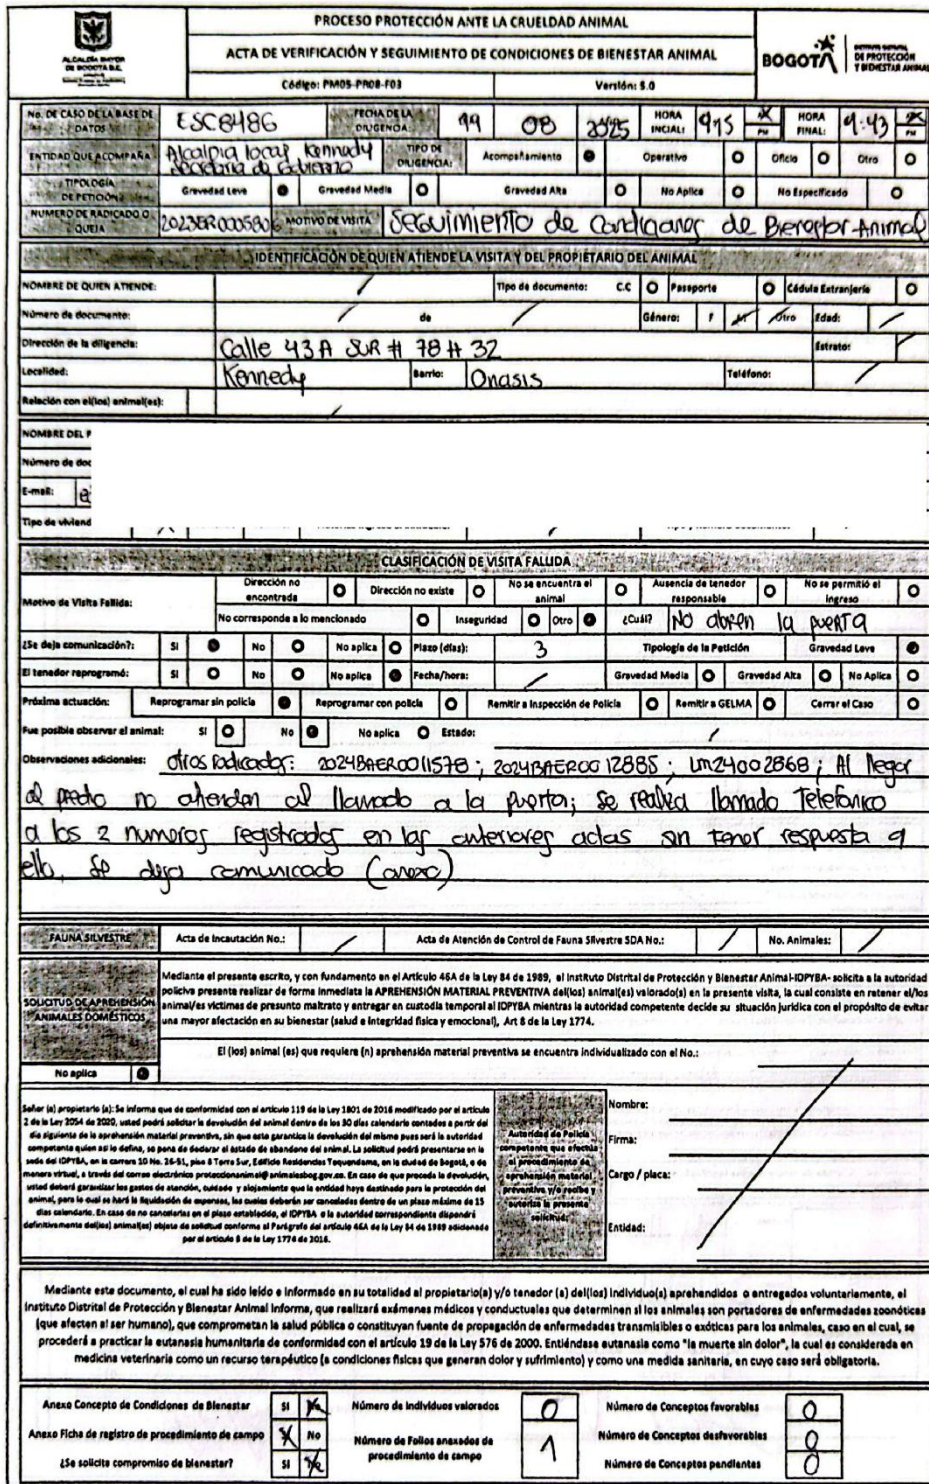 ALCALDÍA MAYOR
DE BOGOTÁ D.C.
PROCESO PROTECCIÓN ANTE LA CRUELDAD ANIMAL
ACTA DE VERIFICACIÓN Y SEGUIMIENTO DE CONDICIONES DE BIENESTAR ANIMAL
Código: PM05-PR08-F03 Versión: 5.0
BOGOTÁ
DE PROTECCIÓN
Y BIENESTAR ANIMAL
No. DE CASO DE LA BASE DE DATOS ESC8486 FECHA DE LA DILIGENCIA: 19 08 2025 HORA INCIAL: 915 PM HORA FINAL: 9:43 PM
ENTIDAD QUE ACOMPAÑA Alcaldia local Kennedy Secretaria de Gobierno TIPO DE DILIGENCIA: Acompañamiento Operativo Oficio Otro
TIPOLOGÍA DE PETICIÓN Gravedad Leve Gravedad Media Gravedad Alta No Aplica No Especificado
NUMERO DE RADICADO O QUEJA 2023ER0005806 MOTIVO DE VISITA Seguimiento de Condiciones de Bienestar Animal
IDENTIFICACIÓN DE QUIEN ATIENDE LA VISITA Y DEL PROPIETARIO DEL ANIMAL
NOMBRE DE QUIEN ATIENDE: / Tipo de documento: C.C Pasaporte Cédula Extranjería
Número de documento: / de / Género: F M Otro Edad: /
Dirección de la diligencia: Calle 43 A SUR # 78 H 32 Estrato:
Localidad: Kennedy Barrio: Onasis Teléfono: /
Relación con el(los) animal(es): /
NOMBRE DEL P
Número de doc
E-mail:
Tipo de viviend
CLASIFICACIÓN DE VISITA FALLIDA
Motivo de Visita Fallida: Dirección no encontrada Dirección no existe No se encuentra el animal Ausencia de tenedor responsable No se permitió el ingreso
No corresponde a lo mencionado Inseguridad Otro ¿Cuál? No abren la puerta
¿Se deja comunicación?: SI No No aplica Plazo (días): 3 Tipología de la Petición Gravedad Leve
El tenedor reprogramó: SI No No aplica Fecha/hora: / Gravedad Media Gravedad Alta No Aplica
Próxima actuación: Reprogramar sin policía Reprogramar con policía Remitir a Inspección de Policía Remitir a GELMA Cerrar el Caso
Fue posible observar el animal: SI No No aplica Estado: /
Observaciones adicionales: otros radicados: 2024BAER0011578; 2024BAER0012885; LM24002868; Al llegar
al predio no atienden al llamado a la puerta; se realiza llamado Telefonico
a los 2 numeros registrados en las anteriores actas sin tener respuesta a
ello, se deja comunicado (anexo)
FAUNA SILVESTRE Acta de Incautación No.: / Acta de Atención de Control de Fauna Silvestre SDA No.: / No. Animales: /
SOLICITUD DE APREHENSIÓN ANIMALES DOMÉSTICOS
Mediante el presente escrito, y con fundamento en el Artículo 46A de la Ley 84 de 1989, el Instituto Distrital de Protección y Bienestar Animal-IDPYBA- solicita a la autoridad
policiva presente realizar de forma inmediata la APREHENSIÓN MATERIAL PREVENTIVA del(los) animal(es) valorado(s) en la presente visita, la cual consiste en retener el/los
animal/es víctimas de presunto maltrato y entregar en custodia temporal al IDPYBA mientras la autoridad competente decide su situación jurídica con el propósito de evitar
una mayor afectación en su bienestar (salud e integridad física y emocional), Art 8 de la Ley 1774.
El (los) animal (es) que requiere (n) aprehensión material preventiva se encuentra individualizado con el No.:
No aplica
Señor (a) propietario (a): Se informa que de conformidad con el artículo 119 de la Ley 1801 de 2016 modificado por el artículo
2 de la Ley 2054 de 2020, usted podrá solicitar la devolución del animal dentro de los 30 días calendario contados a partir del
día siguiente de la aprehensión material preventiva, sin que esto garantice la devolución del mismo pues será la autoridad
competente quien así lo defina, so pena de declarar el estado de abandono del animal. La solicitud podrá presentarse en la
sede del IDPYBA, en la carrera 10 No. 26-51, piso 8 Torre Sur, Edificio Residencias Tequendama, en la ciudad de Bogotá, o de
manera virtual, a través del correo electrónico proteccionanimal@animalesbog.gov.co. En caso de que proceda la devolución,
usted deberá garantizar los gastos de atención, cuidado y alojamiento que la entidad haya destinado para la protección del
animal, para lo cual se hará la liquidación de expensas, las cuales deberán ser canceladas dentro de un plazo máximo de 15
días calendario. En caso de no cancelarlas en el plazo establecido, el IDPYBA o la autoridad correspondiente dispondrá
definitivamente del(los) animal(es) objeto de solicitud conforme al Parágrafo del artículo 46A de la Ley 84 de 1989 adicionado
por el artículo 8 de la Ley 1774 de 2016.
Autoridad de Policía
competente que efectúa
el procedimiento de
aprehensión material
preventiva y/o recibe y
autoriza la presente
solicitud:
Nombre:
Firma:
Cargo / placa:
Entidad:
Mediante este documento, el cual ha sido leído e informado en su totalidad al propietario(a) y/o tenedor (a) del(los) individuo(s) aprehendidos o entregados voluntariamente, el
Instituto Distrital de Protección y Bienestar Animal informa, que realizará exámenes médicos y conductuales que determinen si los animales son portadores de enfermedades zoonóticas
(que afecten al ser humano), que comprometan la salud pública o constituyan fuente de propagación de enfermedades transmisibles o exóticas para los animales, caso en el cual, se
procederá a practicar la eutanasia humanitaria de conformidad con el artículo 19 de la Ley 576 de 2000. Entiéndase eutanasia como "la muerte sin dolor", la cual es considerada en
medicina veterinaria como un recurso terapéutico (a condiciones físicas que generan dolor y sufrimiento) y como una medida sanitaria, en cuyo caso será obligatoria.
Anexo Concepto de Condiciones de Bienestar SI No Número de individuos valorados 0 Número de Conceptos favorables 0
Anexo Ficha de registro de procedimiento de campo SI No Número de Folios anexados de procedimiento de campo 1 Número de Conceptos desfavorables 0
¿Se solicita compromiso de bienestar? SI No Número de Conceptos pendientes 0